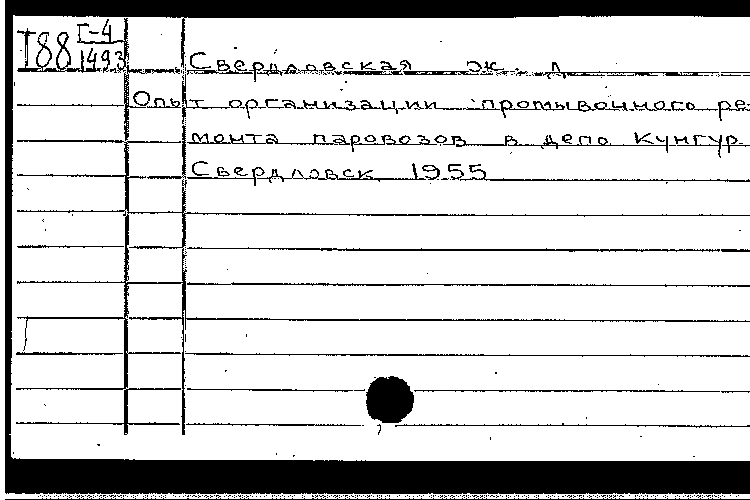 Т88 Г-4
1493
Свердловская ж. д
Опыт организации промывочного ре-
монта паровозов в депо Кунгур.
Свердловск 1955